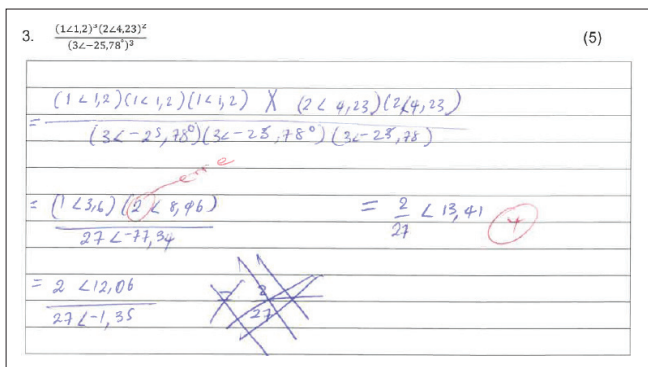 3. (1∠1,2)³(2∠4,23)² / (3∠−25,78°)³ (5)
= (1∠1,2)(1∠1,2)(1∠1,2) X (2∠4,23)(2∠4,23) / (3∠−25,78°)(3∠−25,78°)(3∠−25,78)
= (1∠3,6)(2∠8,46) / 27∠−77,34
= 2/27 ∠13,41
4
= 2∠12,06 / 27∠−1,35
2/27